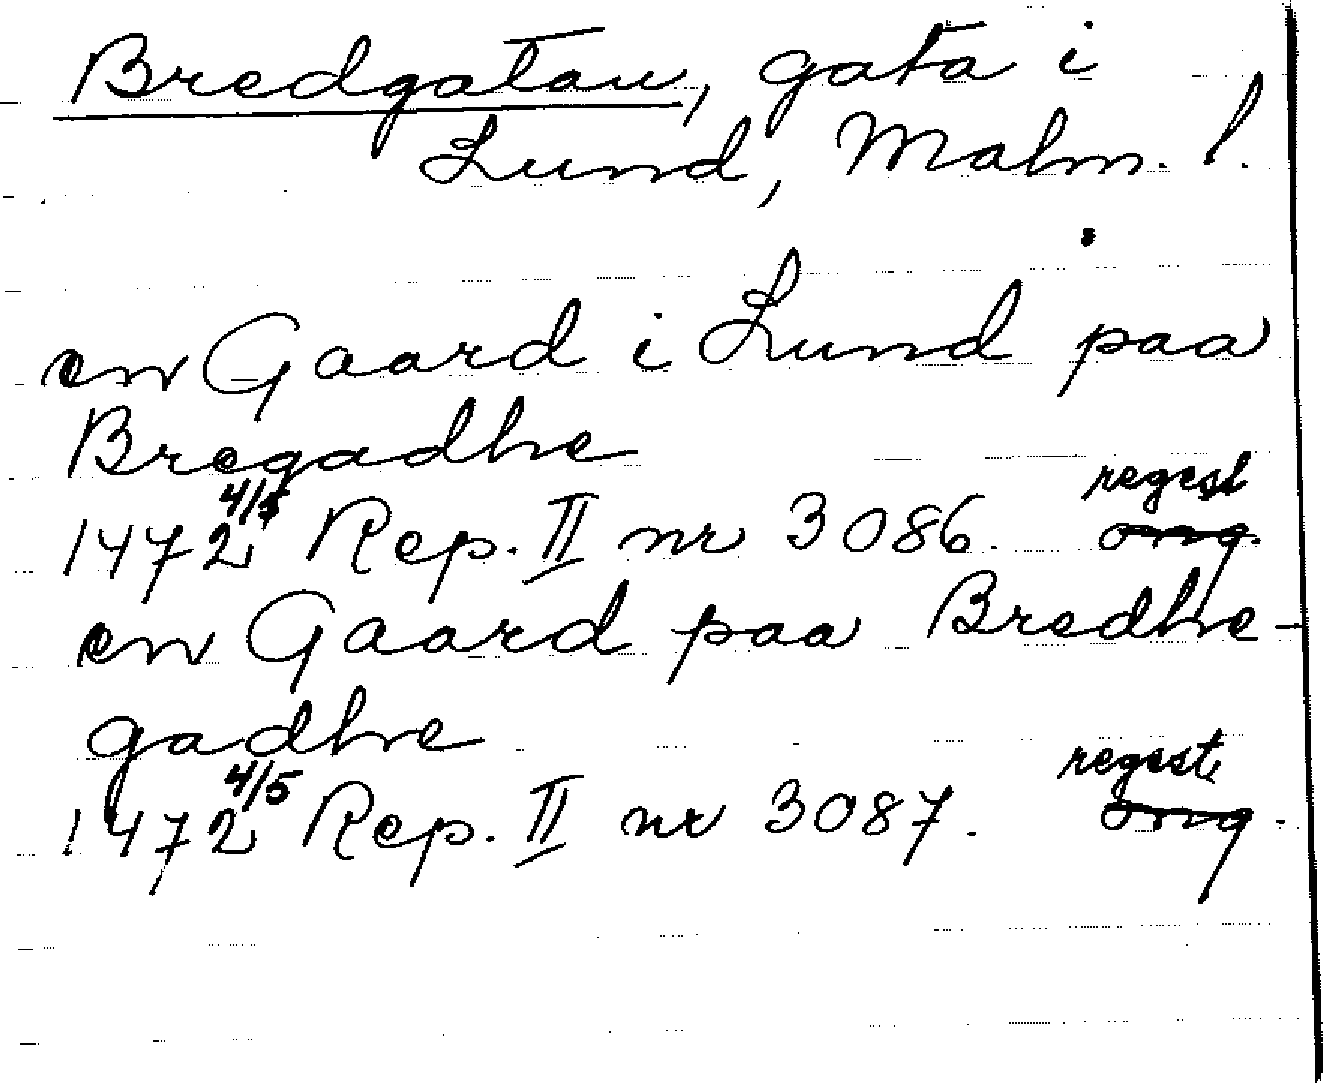 Bredgatan, gata i
Lund, Malm. l.
en Gaard i Lund paa
Bregadhe
1472 4/5 Rep. II nr 3086. regest
en Gaard paa Bredhe-
gadhe
1472 4/5 Rep. II nr 3087. regest